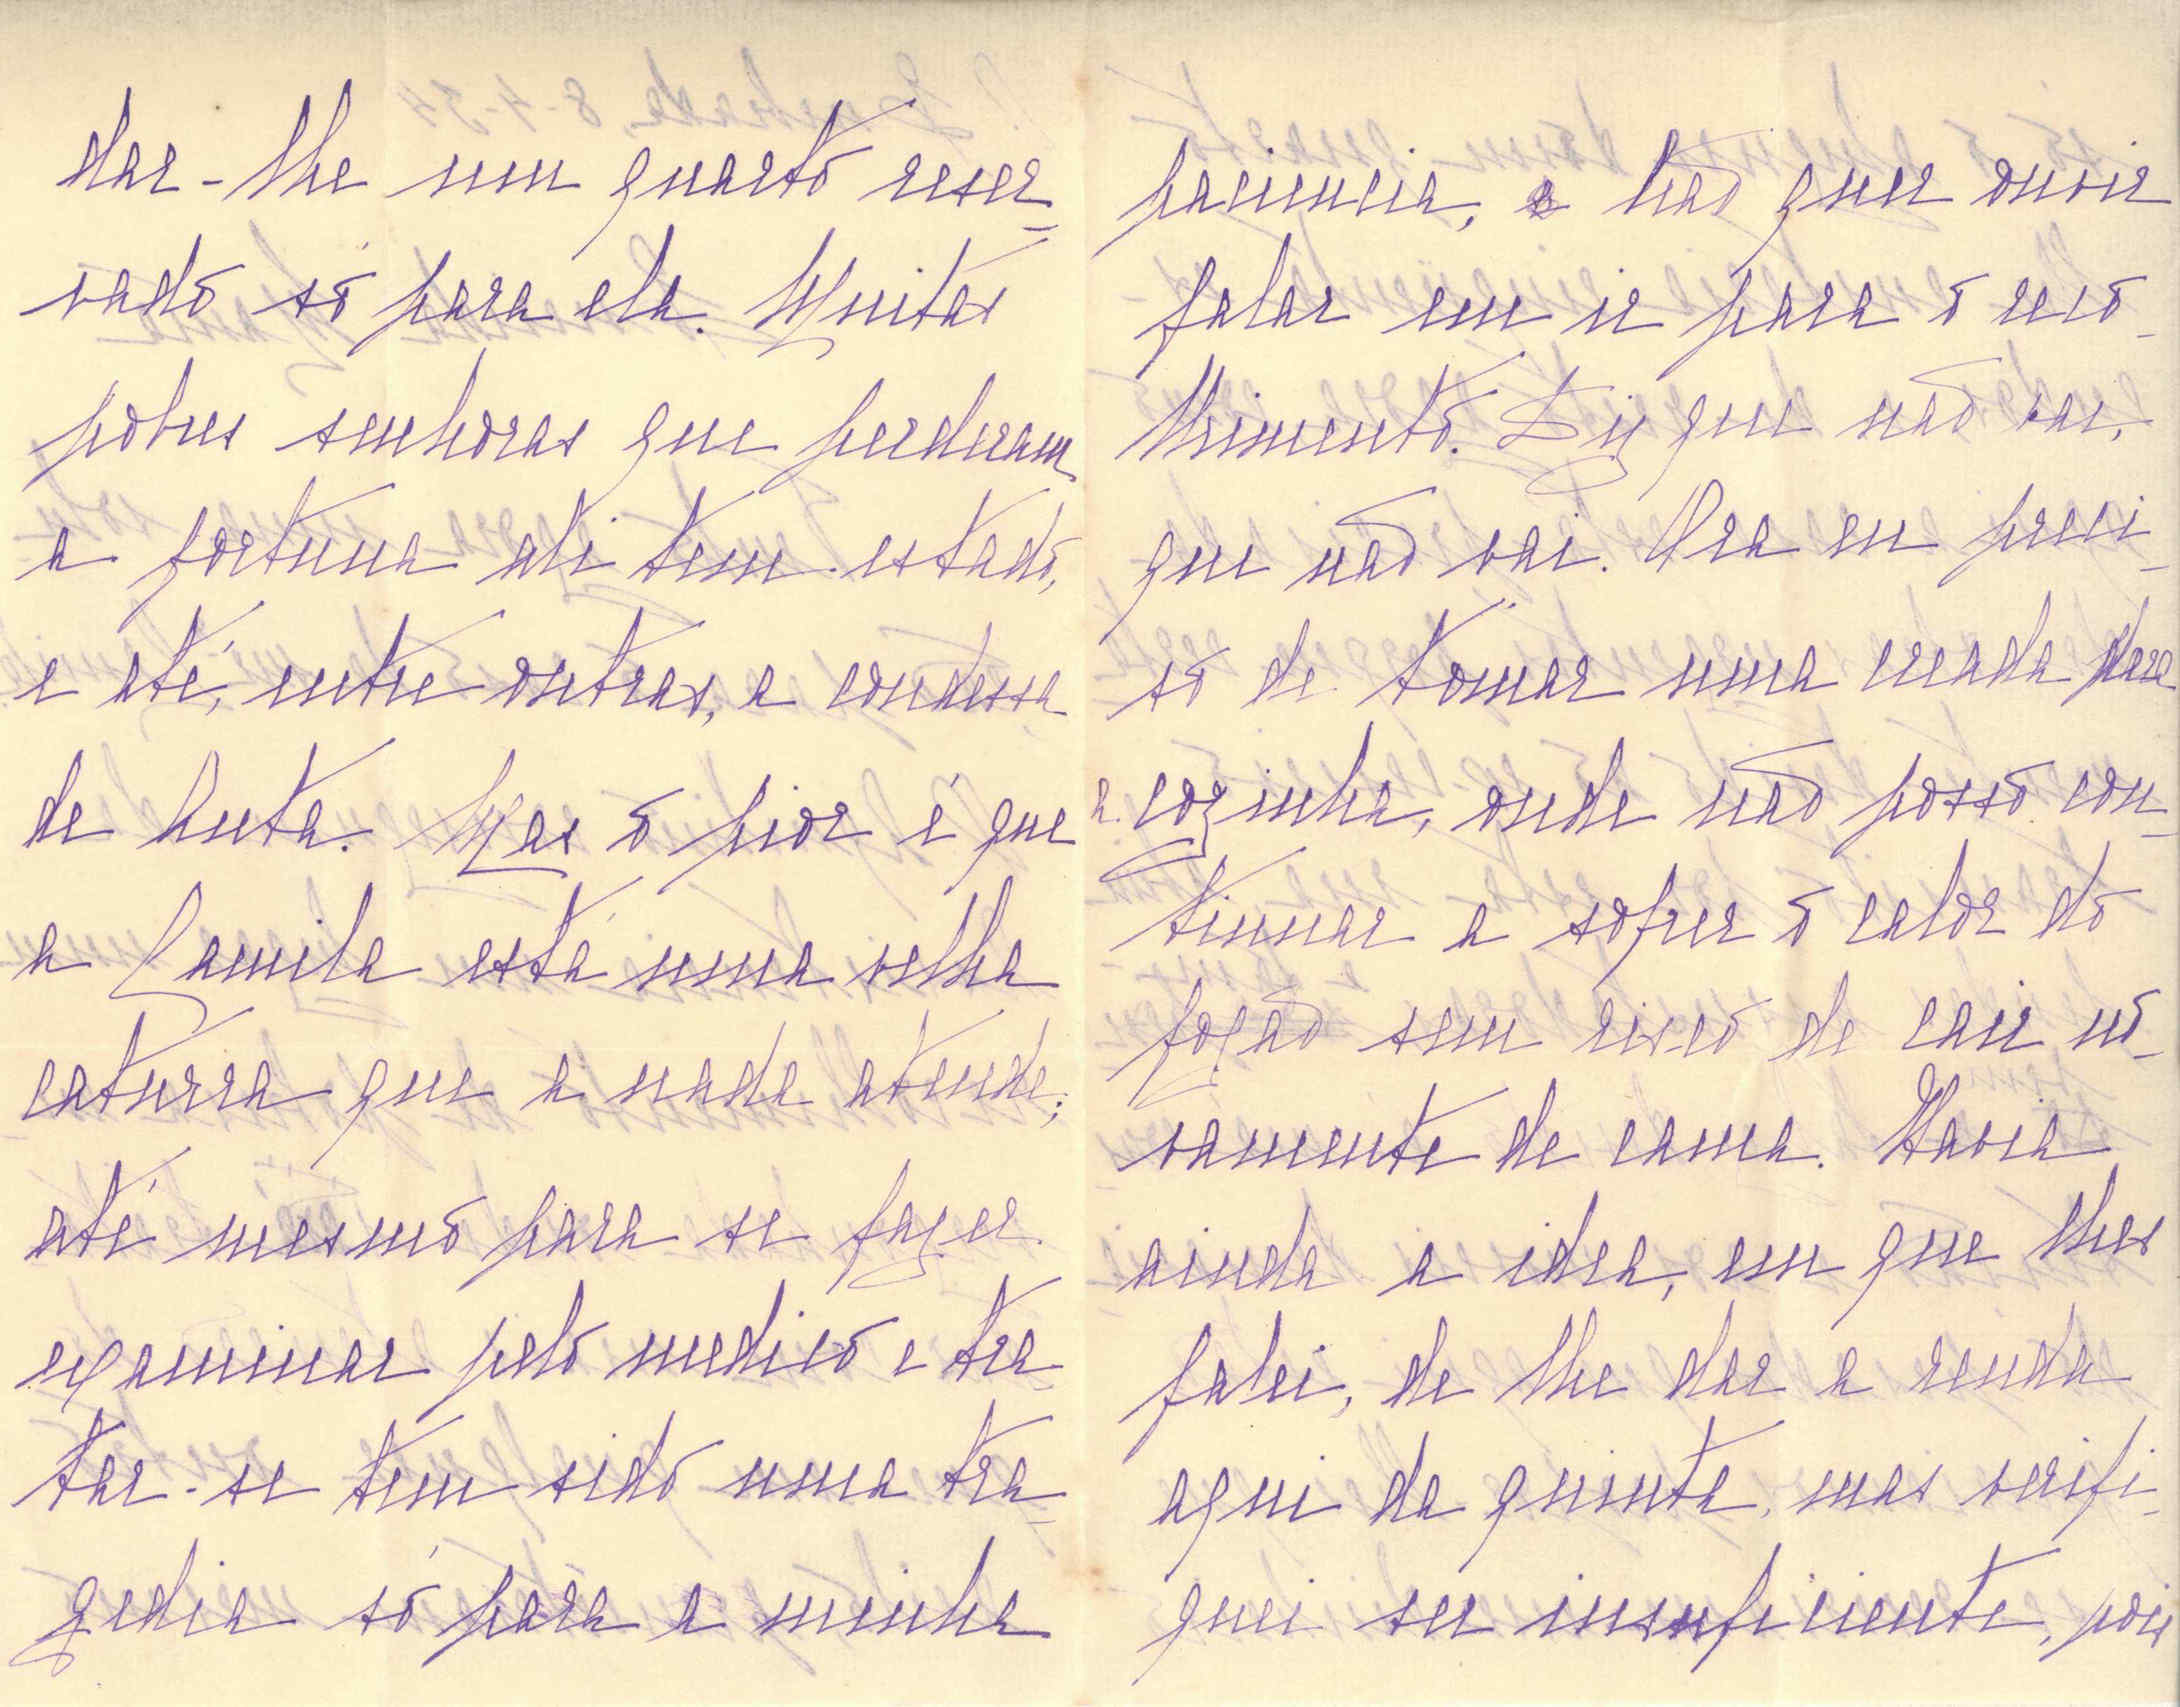 dar-lhe um quarto reser-
vado só para ela. Muitas
pobres senhoras que perderam
a fortuna ali tem estado,
e até, entre outras, a condessa
de Anta. Mas o pior é que
a Camila está uma velha
caturra que a nada atende;
até mesmo para se fazer
examinar pelo medico e tra-
tar-se tem sido uma tra-
gedia só para a minha
paciencia, e não quer ouvir
falar em ir para o reco-
lhimento. Diz que não vai,
que não vai. Ora eu preci-
so de tomar uma creada para
a cozinha, onde não posso con-
tinuar a sofrer o calor do
fogão sem risco de cair no-
vamente de cama. Havia
ainda a idea, em que lhes
falei, de lhe dar a renda
aqui da quinta, mas verifi-
quei ser insuficiente, pois